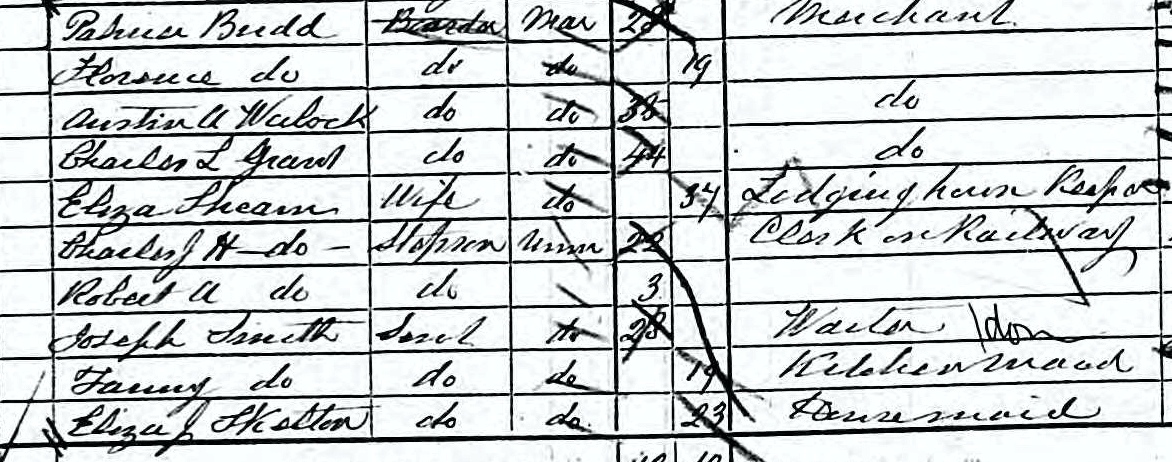 Budd Boarder Mar 28 Merchant
Florence do do do 19
Austin A do do 35 do
Charles L Grant do do 44 do
Eliza Shearn Wife do 37 Lodging house Keeper
Charles J H do - Stepson Unm 22 Clerk on Railway
Robert A do do 3
Joseph Smith Servt do 28 Waiter
Fanny do do do 19 Kitchenmaid
Eliza J Skelton do do 23 Housemaid